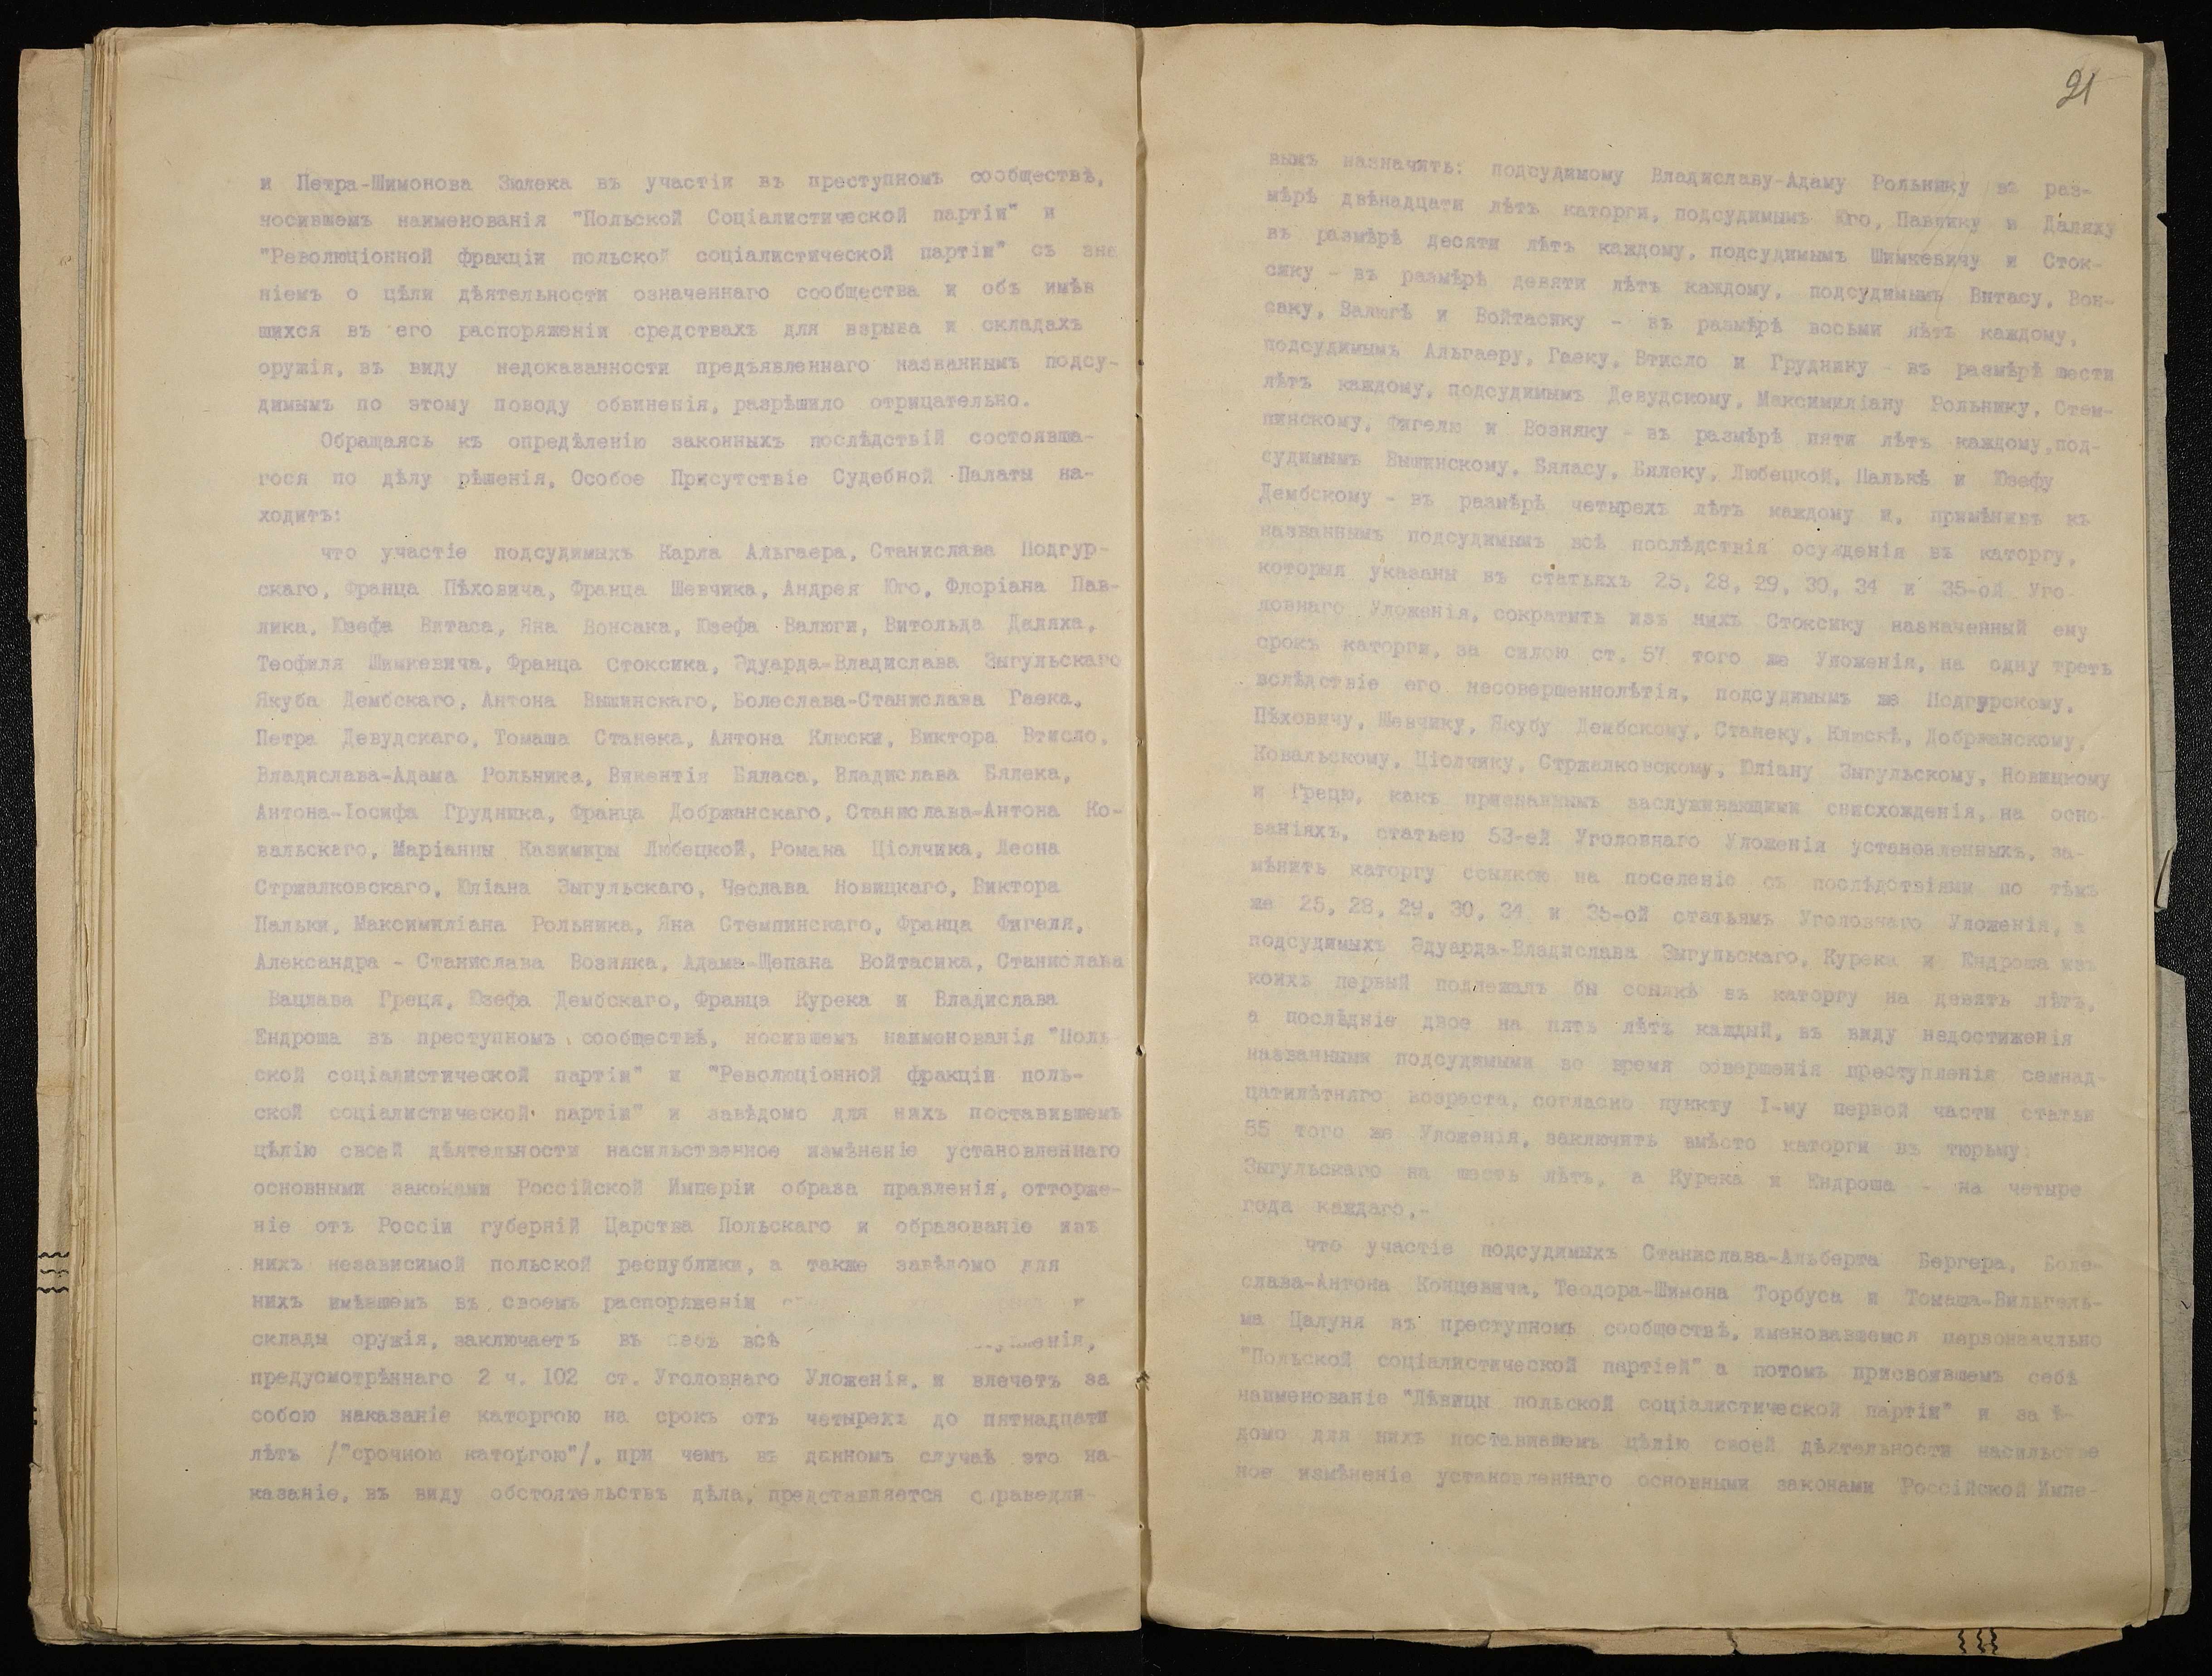 и Петра-Шимонова Зюлека въ участіи въ преступномъ сообществѣ,
носившемъ наименованія "Польской Соціалистической партіи" и
"Революціонной фракціи польской соціалистической партіи" съ зна
ніемъ о цѣли дѣятельности означеннаго сообщества и объ имѣв
шихся въ его распоряженіи средствахъ для взрыва и складахъ
оружія, въ виду недоказанности предъявленнаго названнымъ подсу-
димымъ по этому поводу обвиненія, разрѣшило отрицательно.
Обращаясь къ опредѣленію законныхъ послѣдствій состоявша-
гося по дѣлу рѣшенія, Особое Присутствіе Судебной Палаты на-
ходитъ:
что участіе подсудимыхъ Карла Альгаера, Станислава Подгур-
скаго, Франца Пѣховича, Франца Шевчика, Андрея Юго, Флоріана Пав-
лика, Юзефа Витаса, Яна Вонсака, Юзефа Валюги, Витольда Даляха,
Теофиля Шимкевича, Франца Стоксика, Эдуарда-Владислава Зыгульскаго
Якуба Дембскаго, Антона Вышинскаго, Болеслава-Станислава Гаека,
Петра Девудскаго, Томаша Станека, Антона Клюски, Виктора Втисло,
Владислава-Адама Рольника, Викентія Бяласа, Владислава Бялека,
Антона-Іосифа Грудника, Франца Добржанскаго, Станислава-Антона Ко-
вальскаго, Маріанны Казимиры Любецкой, Романа Ціолчика, Леона
Стржалковскаго, Юліана Зыгульскаго, Чеслава Новицкаго, Виктора
Пальки, Максимиліана Рольника, Яна Стемпинскаго, Франца Фигеля,
Александра - Станислава Возняка, Адама-Щепана Войтасика, Станислава
Вацлава Греця, Юзефа Дембскаго, Франца Курека и Владислава
Ендроша въ преступномъ сообществѣ, носившемъ наименованія "Поль-
ской соціалистической партіи" и "Революціонной фракціи поль-
ской соціалистической партіи" и завѣдомо для нихъ поставившемъ
цѣлію своей дѣятельности насильственное измѣненіе установленнаго
основными законами Россійской Имперіи образа правленія, отторже-
ніе отъ Россіи губерній Царства Польскаго и образованіе изъ
нихъ независимой польской республики, а также завѣдомо для
нихъ имѣвшемъ въ своемъ распоряженіи и
склады оружія, заключаетъ въ себѣ всѣ
предусмотрѣннаго 2 ч. 102 ст. Уголовнаго Уложенія, и влечетъ за
собою наказаніе каторгою на срокъ отъ четырехъ до пятнадцати
лѣтъ /"срочною каторгою"/, при чемъ въ данномъ случаѣ это на-
казаніе, въ виду обстоятельствъ дѣла, представляется справедли-
21
вымъ назначить: подсудимому Владиславу-Адаму Рольнику въ раз-
мѣрѣ двѣнадцати лѣтъ каторги, подсудимымъ Юго, Павлику и Даляху
въ размѣрѣ десяти лѣтъ каждому, подсудимымъ Шимкевичу и Сток-
сику - въ размѣрѣ девяти лѣтъ каждому, подсудимымъ Витасу, Вон-
саку, Валюгѣ и Войтасику - въ размѣрѣ восьми лѣтъ каждому,
подсудимымъ Альгаеру, Гаеку, Втисло и Груднику - въ размѣрѣ шести
лѣтъ каждому, подсудимымъ Девудскому, Максимиліану Рольнику, Стем-
пинскому, Фигелю и Возняку - въ размѣрѣ пяти лѣтъ каждому, под-
судимымъ Вышинскому, Бяласу, Бялеку, Любецкой, Палькѣ и Юзефу
Дембскому - въ размѣрѣ четырехъ лѣтъ каждому и, примѣнивъ къ
названнымъ подсудимымъ всѣ послѣдствія осужденія въ каторгу,
которыя указаны въ статьяхъ 25, 28, 29, 30, 34 и 35-ой Уго-
ловнаго Уложенія, сократить изъ нихъ Стоксику назначенный ему
срокъ каторги, за силою ст. 57 того же Уложенія, на одну треть
вслѣдствіе его несовершеннолѣтія, подсудимымъ же Подгурскому,
Пѣховичу, Шевчику, Якубу Дембскому, Станеку, Клюскѣ, Добржанскому,
Ковальскому, Ціолчику, Стржалковскому, Юліану Зыгульскому, Новицкому
и Грецю, какъ признаннымъ заслуживающими снисхожденія, на осно-
ваніяхъ, статьею 53-ей Уголовнаго Уложенія установленныхъ, за-
мѣнить каторгу ссылкою на поселеніе съ послѣдствіями по тѣмъ
же 25, 28, 29, 30, 34 и 35-ой статьямъ Уголовнаго Уложенія, а
подсудимыхъ Эдуарда-Владислава Зыгульскаго, Курека и Ендроша изъ
коихъ первый подлежалъ бы ссылкѣ въ каторгу на девять лѣтъ,
а послѣдніе двое на пять лѣтъ каждый, въ виду недостиженія
названными подсудимыми во время совершенія преступленія семнад-
цатилѣтняго возраста, согласно пункту I-му первой части статьи
55 того же Уложенія, заключить вмѣсто каторги въ тюрьму:
Зыгульскаго на шесть лѣтъ, а Курека и Ендроша - на четыре
года каждаго,-
что участіе подсудимыхъ Станислава-Альберта Бергера, Боле-
слава-Антона Концевича, Теодора-Шимона Торбуса и Томаша-Вильгель-
ма Цалуня въ преступномъ сообществѣ, именовавшемся первоначально
"Польской соціалистической партіей" а потомъ присвоившемъ себѣ
наименованіе "Лѣвицы польской соціалистической партіи" и завѣ-
домо для нихъ поставившемъ цѣлію своей дѣятельности насильстве
ное измѣненіе установленнаго основными законами Россійской Импе-